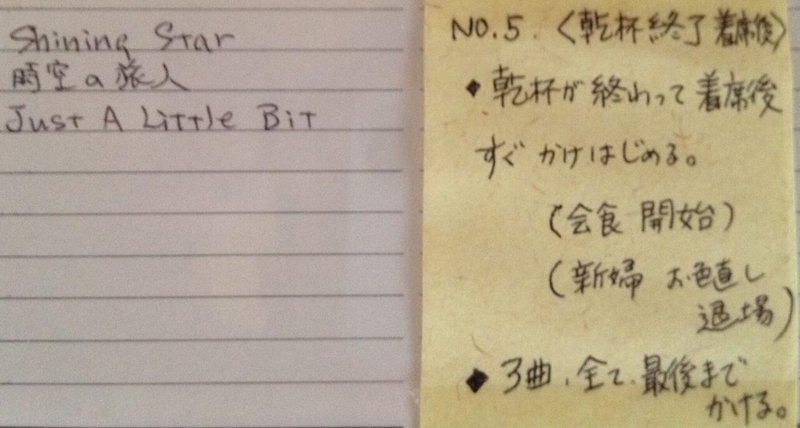 Shining Star
時空の旅人
Just A Little Bit
NO.5.〈乾杯終了着席後〉
◆乾杯が終わって着席後
すぐかけはじめる。
(会食 開始)
(新婦 お色直し
退場)
◆3曲、全て、最後まで
かける。